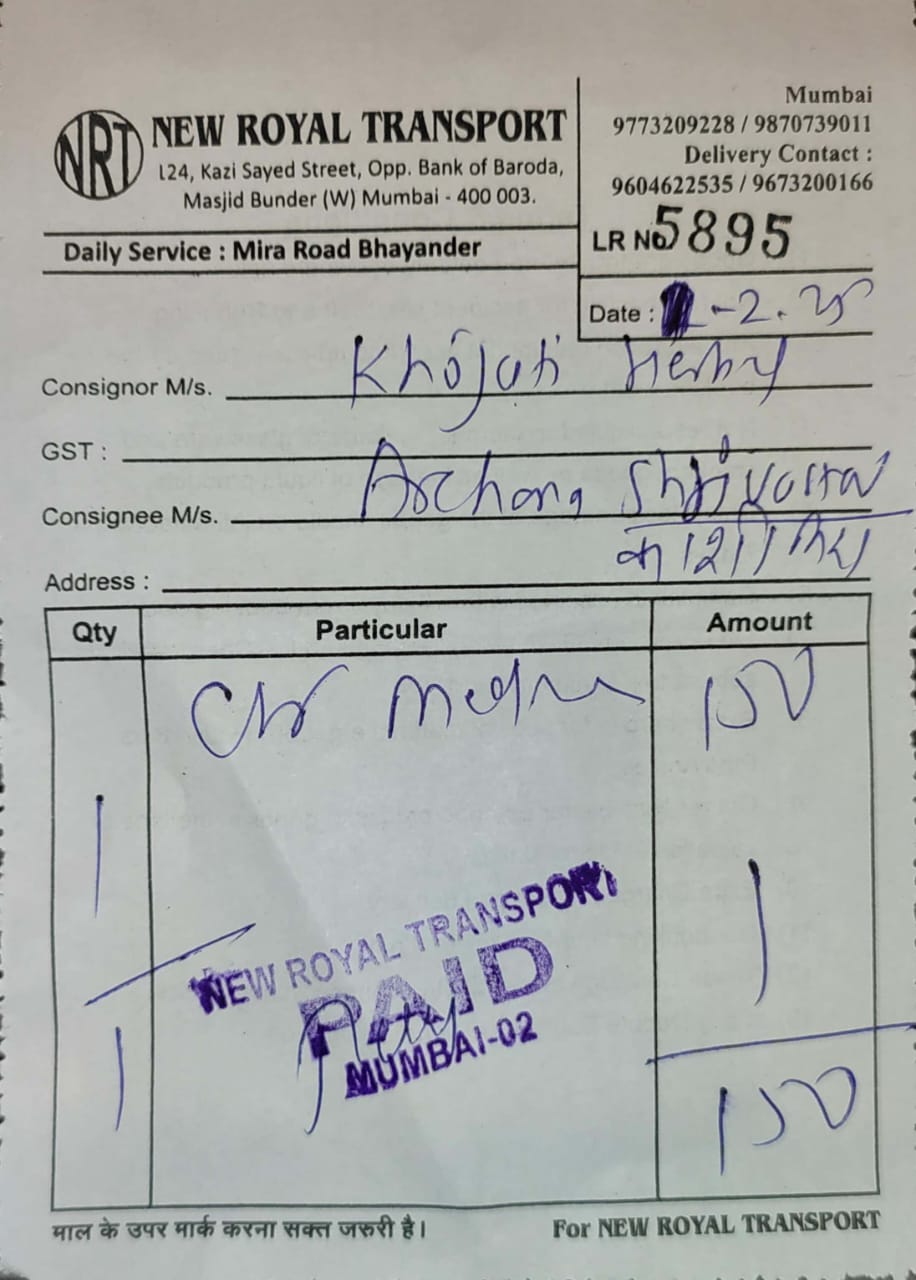 NRT
NEW ROYAL TRANSPORT
124, Kazi Sayed Street, Opp. Bank of Baroda,
Masjid Bunder (W) Mumbai - 400 003.
Daily Service : Mira Road Bhayander
Mumbai
9773209228 / 9870739011
Delivery Contact :
9604622535 / 9673200166
LR No 5895
Date : -2.25
Consignor M/s. Khojati
GST :
Consignee M/s. Archana
Address :
Qty Particular Amount
150
1
NEW ROYAL TRANSPORT
PAID
MUMBAI-02
1 150
माल के उपर मार्क करना सक्त जरुरी है।
For NEW ROYAL TRANSPORT